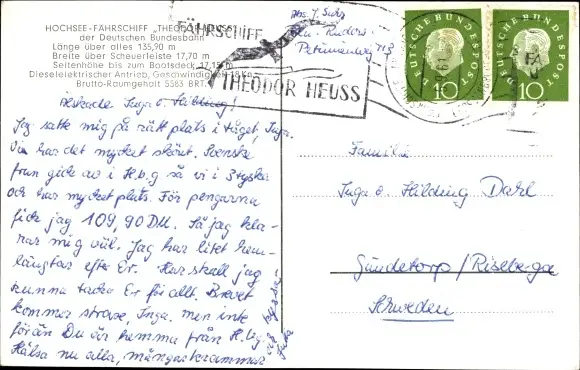 HOCHSEE-FÄHRSCHIFF "THEODOR HEUSS"
der Deutschen Bundesbahn
Länge über alles 135,90 m
Breite über Scheuerleiste 17,70 m
Seitenhöhe bis zum Bootsdeck 17,15 m
Dieselelektrischer Antrieb, Geschwindigkeit 18 Kn
Brutto-Raumgehalt 5583 BRT.
FÄHRSCHIFF
THEODOR HEUSS
DEUTSCHE BUNDESPOST
10
DEUTSCHE BUNDESPOST
10
Petunienweg
Älskade Inga o. Hilding!
Jag satte mig på rätt plats i tåget, Inga.
Vi har det mycket skönt. Svenska
gick av i H.b.g så vi i 3 tyskar
och har mycket plats. För pengarna
fick jag 109,90 DM. Så jag kla-
rar mig väl. Jag har litet hem-
längtar efter Er. Hur skall jag
kunna tacka Er för allt. Brevet
kommer strax, Inga. men inte
förän Du är hemma från H.b.g.
Hälsa nu alla, många kramar
Familie
Inga o. Hilding Dahl
Gündetorp/Riseberga
Schweden